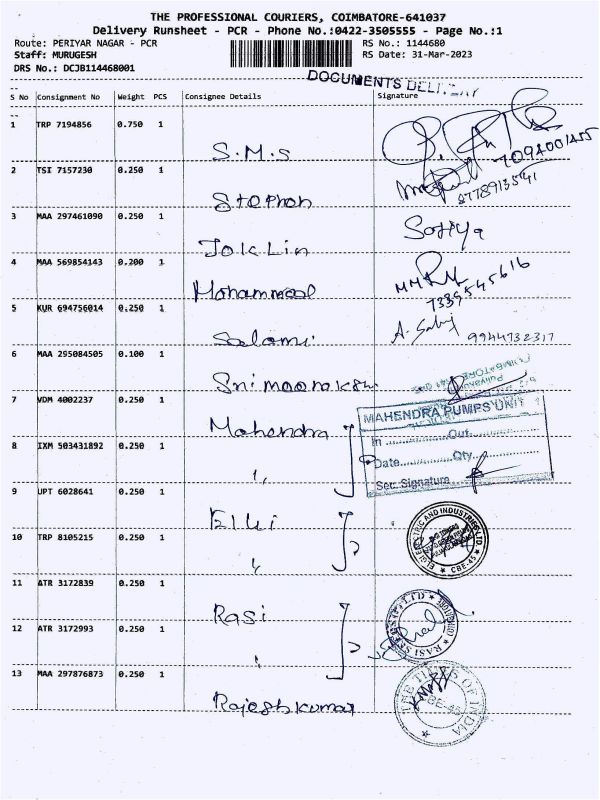 THE PROFESSIONAL COURIERS, COIMBATORE-641037
Delivery Runsheet - PCR - Phone No.:0422-3505555 - Page No.:1
Route: PERIYAR NAGAR - PCR
RS No.: 1144680
Staff: MURUGESH
RS Date: 31-Mar-2023
DRS No.: DCJB114468001
DOCUMENTS DELIVERY
S No Consignment No Weight PCS Consignee Details Signature
1 TRP 7194856 0.750 1
S.M.S
2 TSI 7157230 0.250 1
8778913541
Stephen
3 MAA 297461090 0.250 1
Sofiya
Joklin
4 MAA 569854143 0.200 1
Mohammed
7339545616
5 KUR 694756014 0.250 1
Salomi
9944732317
6 MAA 295084505 0.100 1
COIMBATORE
7 VDM 4002237 0.250 1
MAHENDRA PUMPS UNIT 1
Mahendra
In Out
8 IXM 503431892 0.250 1
Date Qty.
"
Sec. Signature
9 UPT 6028641 0.250 1
Elgi
ELGI ELECTRIC AND INDUSTRIES LTD. CBE-45
10 TRP 8105215 0.250 1
"
11 ATR 3172839 0.250 1
Rasi
RASI SEEDS (P) LTD
12 ATR 3172993 0.250 1
"
13 MAA 297876873 0.250 1
THE TIMES OF INDIA
CBE-45
Rajeshkumar